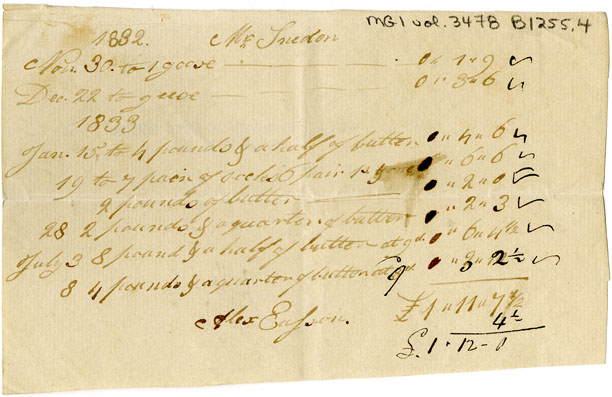 MG1 vol. 3478 B1255.4
1832. Mr Snedon
Nov. 30 to 1 goose 0 " 1 " 9
Dec. 22 to geese 0 " 3 " 6
1833
Jan. 15 to 4 pounds & a half of butter 0 " 4 " 6
19 to 7 pair of socks 6 pair 1s 0 " 6 " 6
2 pounds of butter 0 " 2 " 0
28 2 pounds & a quarter of butter 0 " 2 " 3
July 3 8 pound & a half of butter at 9d 0 " 6 " 4½
8 4 pounds & a quarter of butter at 9d 0 " 3 " 2½
£1 " 11 " 7½
Alex Easson.
4½
£. 1 " 12 - 0